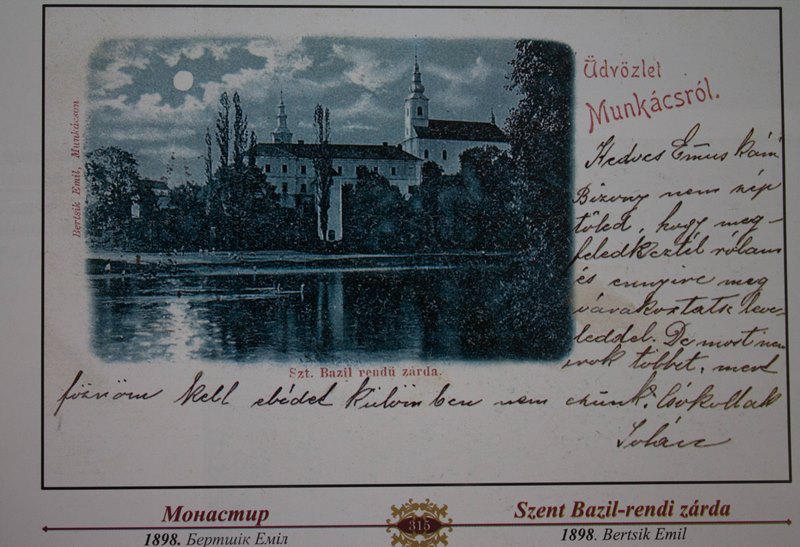 Üdvözlet
Munkácsról.
Bertsik Emil, Munkácson
Kedves Emus kám
Bizony nem szép
tőled, hogy meg-
feledkeztél rólam
és ennyire meg
várakoztatsz leve-
leddel. De most nem
irok többet, mert
főznöm kell ebédet különben nem eszünk. Csókollak
Szt. Bazil rendű zárda.
Монастир
1898. Бертшік Еміл
315
Szent Bazil-rendi zárda
1898. Bertsik Emil